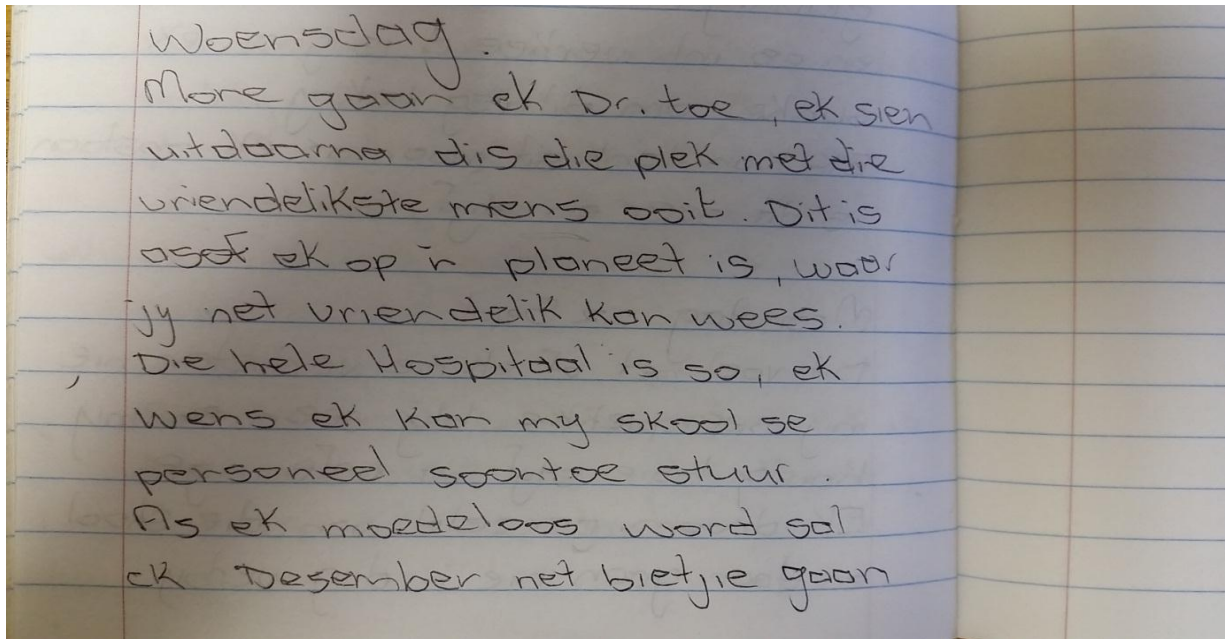 Woensdag.
More gaan ek Dr. toe, ek sien
uitdaarna dis die plek met die
vriendelikste mens ooit. Dit is
asof ek op 'n planeet is, waar
jy net vriendelik kan wees.
Die hele Hospitaal is so, ek
wens ek kan my skool se
personeel soontoe stuur.
As ek moedeloos word sal
ek Desember net bietjie gaan